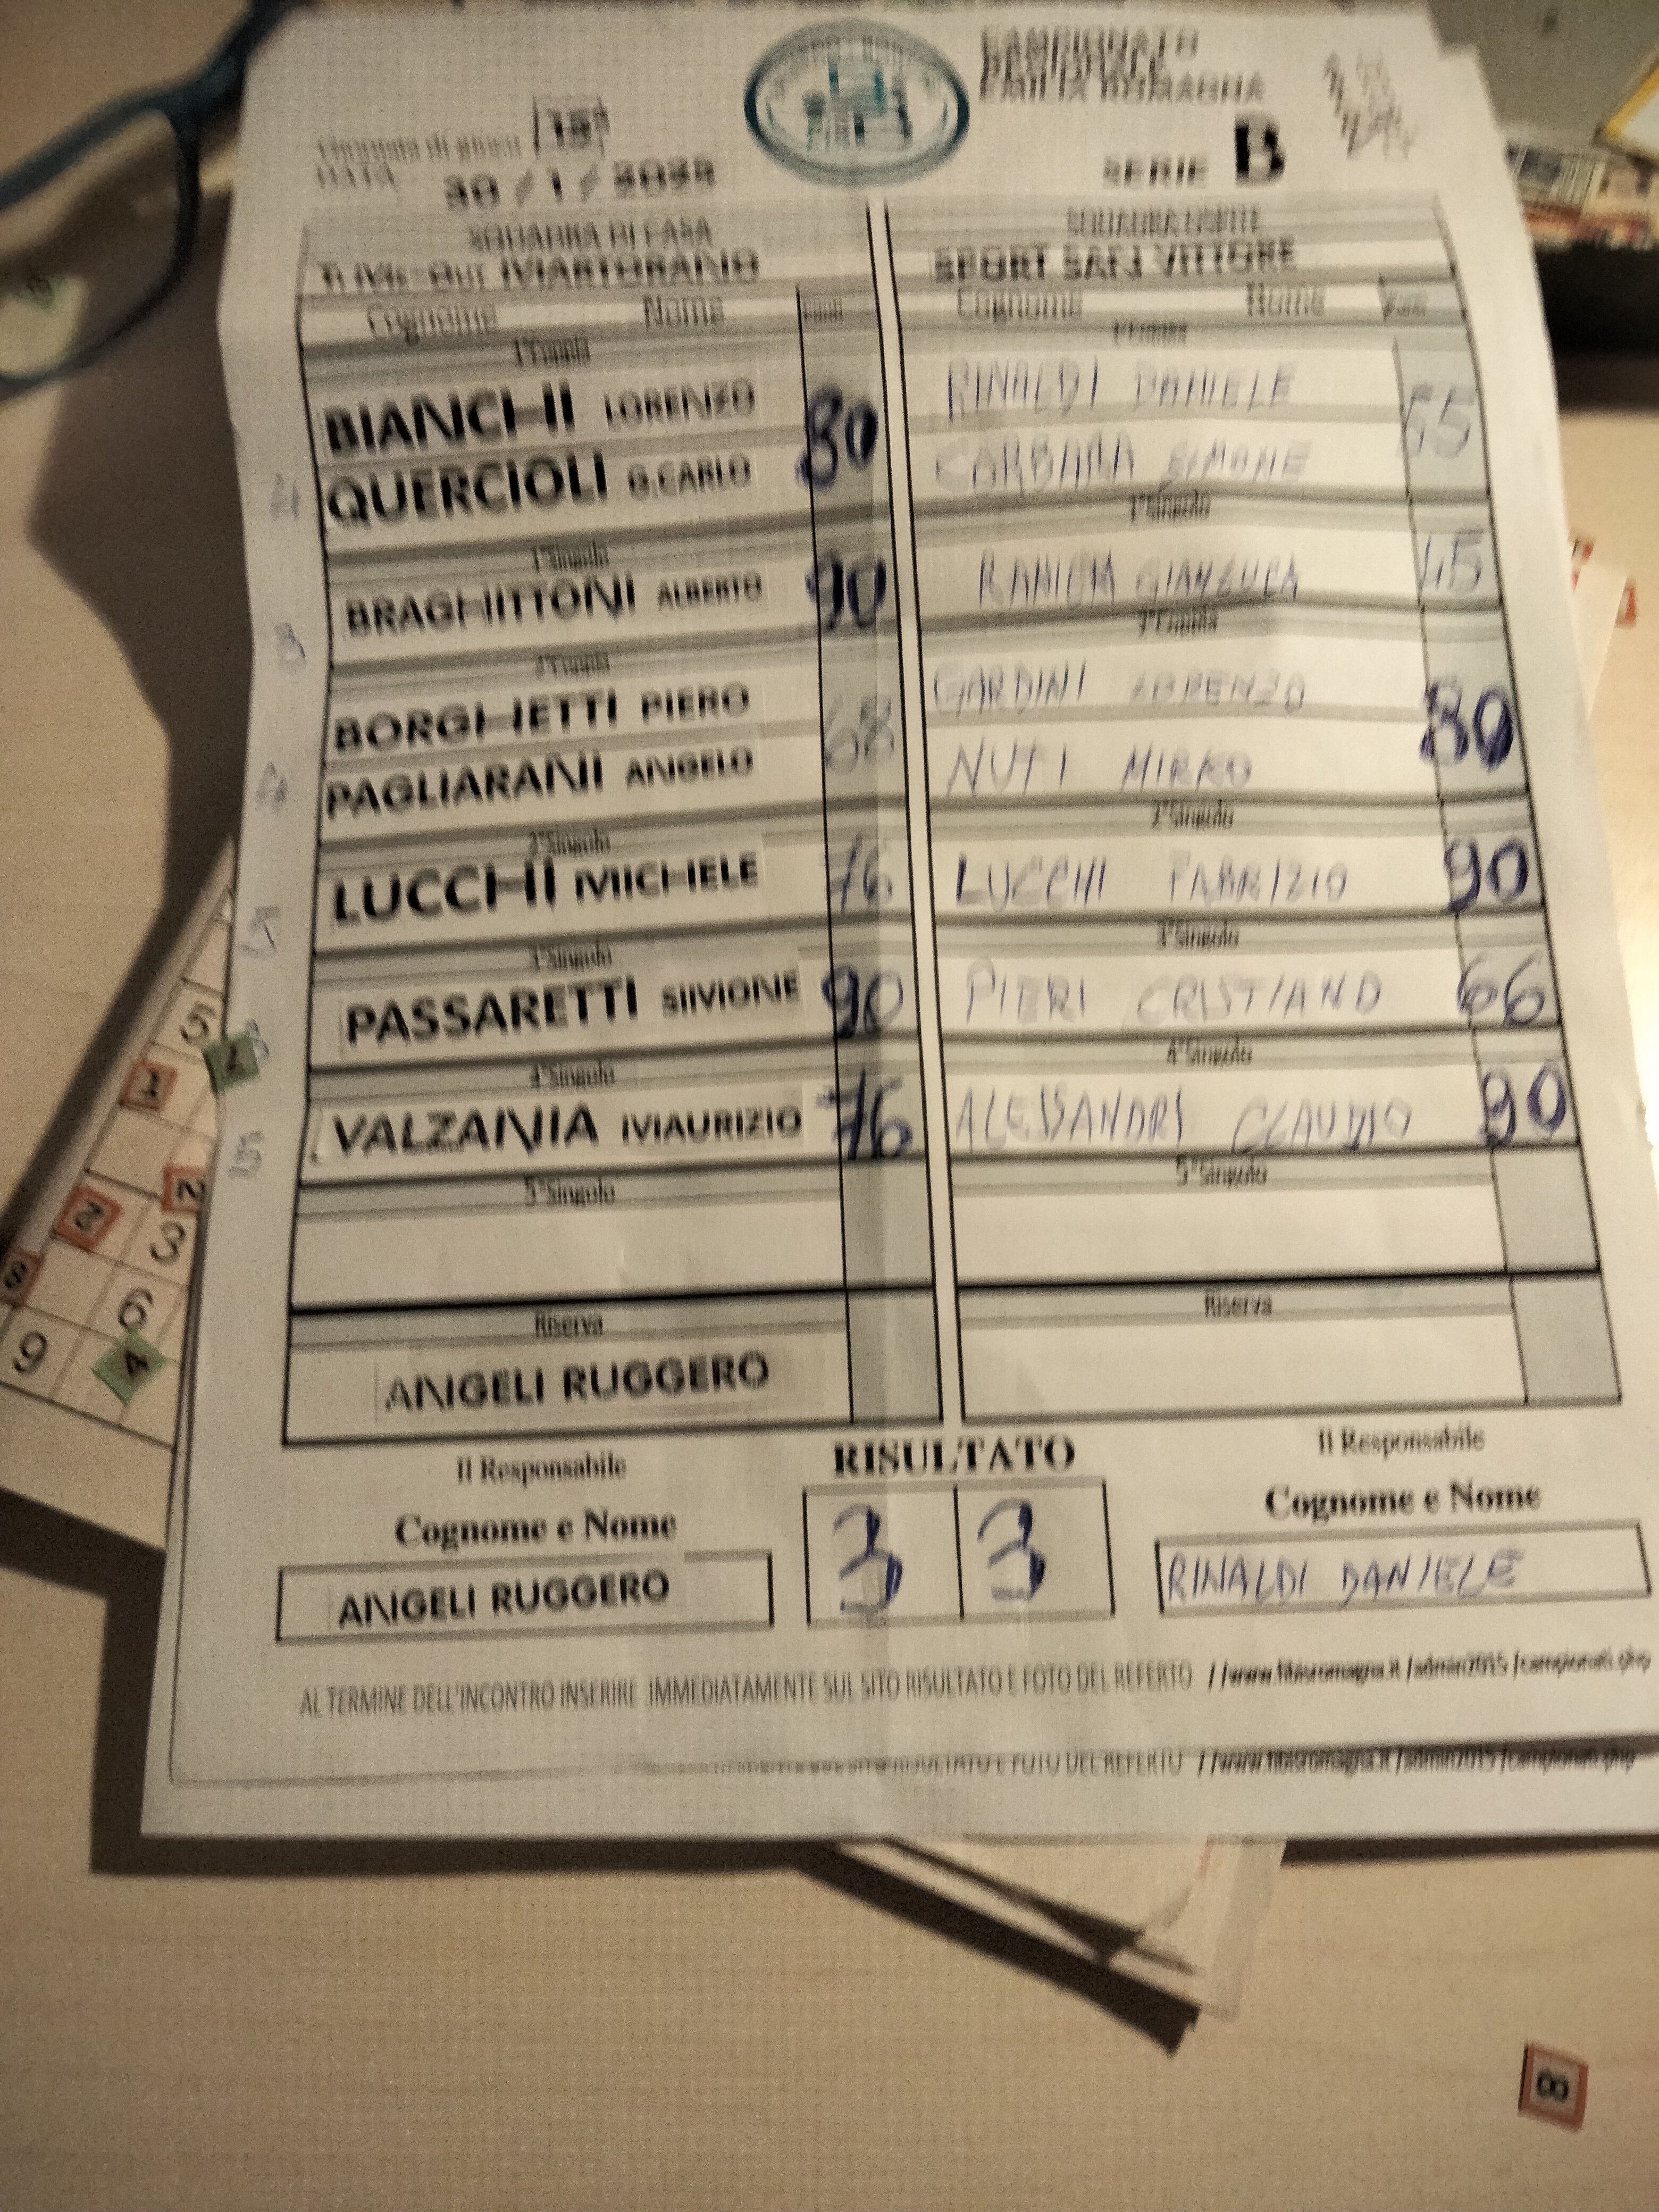 CAMPIONATO
EMILIA ROMAGNA
Giornata di gioco 15ª
SERIE B
DATA 30 / 1 / 2025
SQUADRA DI CASA SQUADRA OSPITE
TI Me-Out MARTORANO SPORT SAN VITTORE
Cognome Nome Punti Cognome Nome Punti
1°Coppia 1°Coppia
BIANCHI LORENZO 80 RINALDI DANIELE
QUERCIOLI G.CARLO SIMONE
1°Singolo 1°Singolo
BRAGHITTONI ALBERTO 90 GIANLUCA
2°Coppia 2°Coppia
BORGHETTI PIERO 68 GARDINI LORENZO 80
PAGLIARANI ANGELO NUTI MIRKO
2°Singolo 2°Singolo
LUCCHI MICHELE 76 LUCCHI FABRIZIO 90
3°Singolo 3°Singolo
PASSARETTI SIMONE 90 PIERI CRISTIANO 66
4°Singolo 4°Singolo
VALZANIA MAURIZIO 76 ALESSANDRI CLAUDIO 90
5°Singolo 5°Singolo
Riserva Riserva
ANGELI RUGGERO
Il Responsabile RISULTATO Il Responsabile
Cognome e Nome 3 3 Cognome e Nome
ANGELI RUGGERO RINALDI DANIELE
AL TERMINE DELL'INCONTRO INSERIRE IMMEDIATAMENTE SUL SITO RISULTATO E FOTO DEL REFERTO //www.fibisromagna.it/admin2015/campionati.php
RISULTATO E FOTO DEL REFERTO //www.fibisromagna.it/admin2015/campionati.php
5
1
2
2
3
8
6
9
4
8